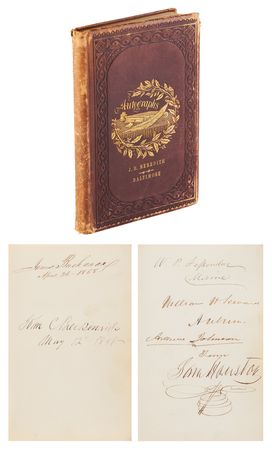 Autographs
J. H. MEREDITH
BALTIMORE
James Buchanan
April 26 - 1858
John C Breckinridge
May 12th 1858
W. P. Fessenden
Maine
William H Seward
Auburn
Andrew Johnson
Sam Houston